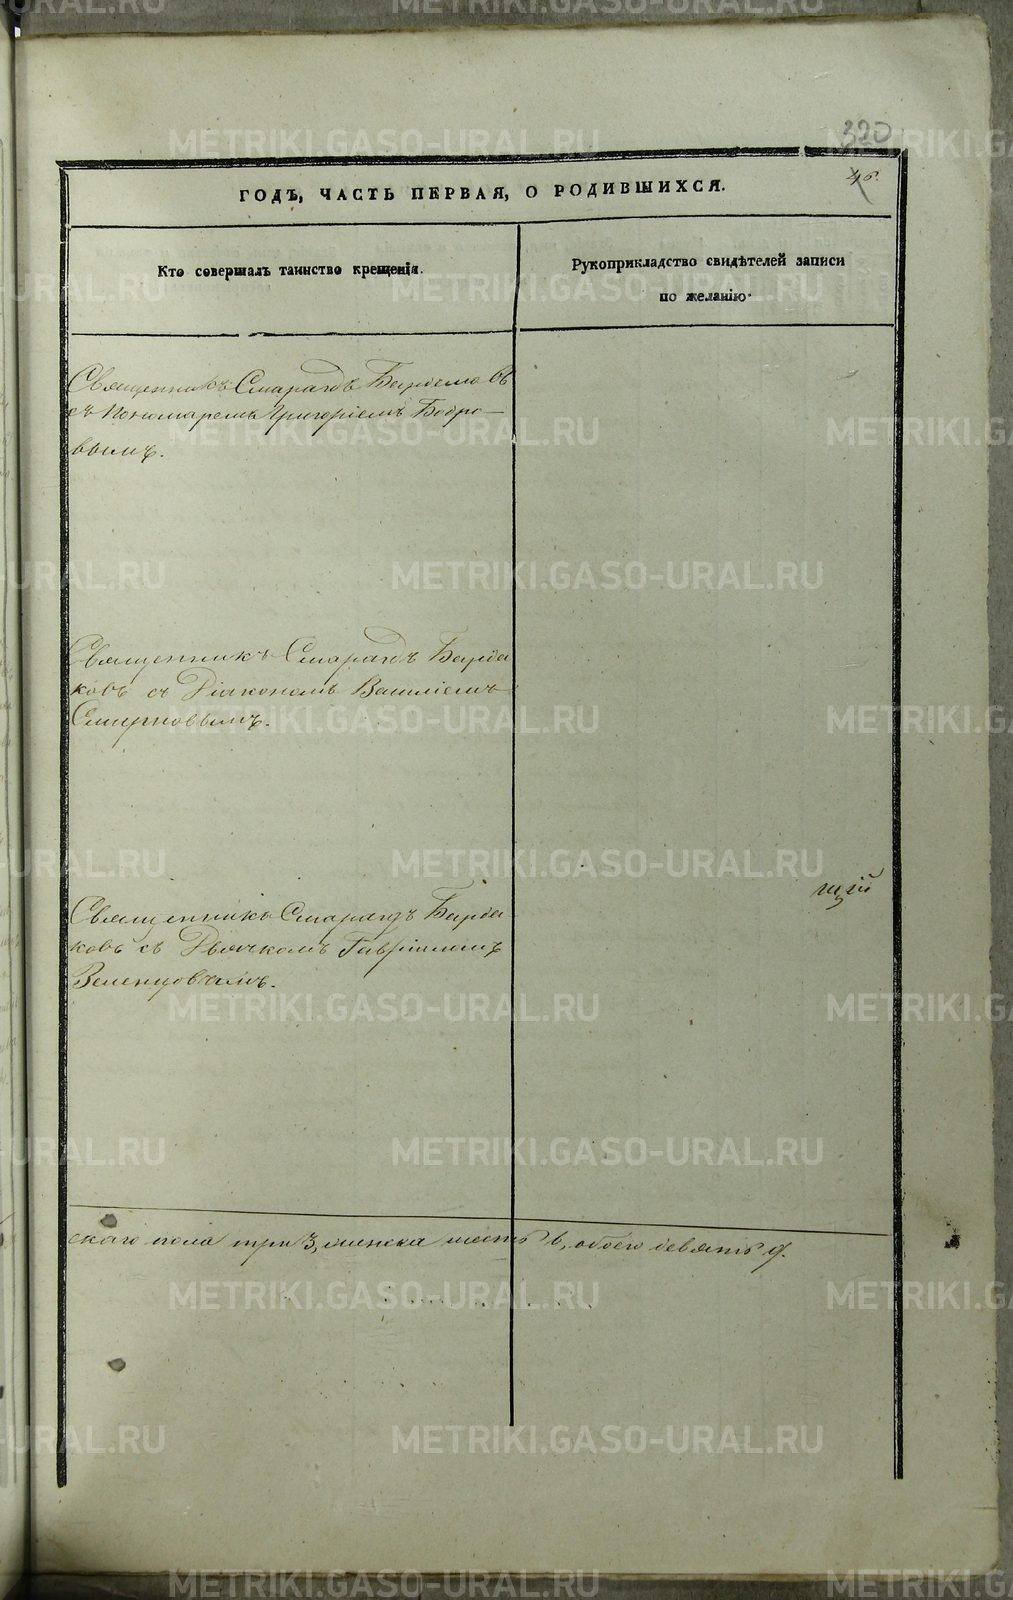 320
46.
ГОДЪ, ЧАСТЬ ПЕРВАЯ, О РОДИВШИХСЯ.
Кто совершалъ таинство крещенія.
Рукоприкладство свидѣтелей записи
по желанію.
Священникъ Смарагдъ Бирюковъ
съ Пономаремъ Григоріемъ Бобро-
вымъ.
Священникъ Смарагдъ
ковъ съ Діакономъ Василіемъ
Смирновымъ.
Священникъ Смарагдъ
ковъ съ Дьячкомъ Гавріиломъ
Зеленцовымъ.
щій
скаго пола три 3, женска шесть 6, обоего девять 9.
METRIKI.GASO-URAL.RU